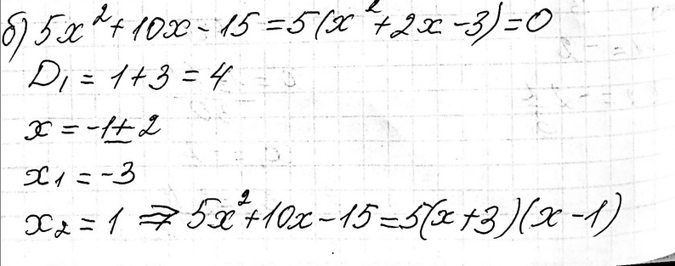 б) 5x²+10x-15=5(x²+2x-3)=0
D₁=1+3=4
x=-1±2
x₁=-3
x₂=1 ⇒ 5x²+10x-15=5(x+3)(x-1)